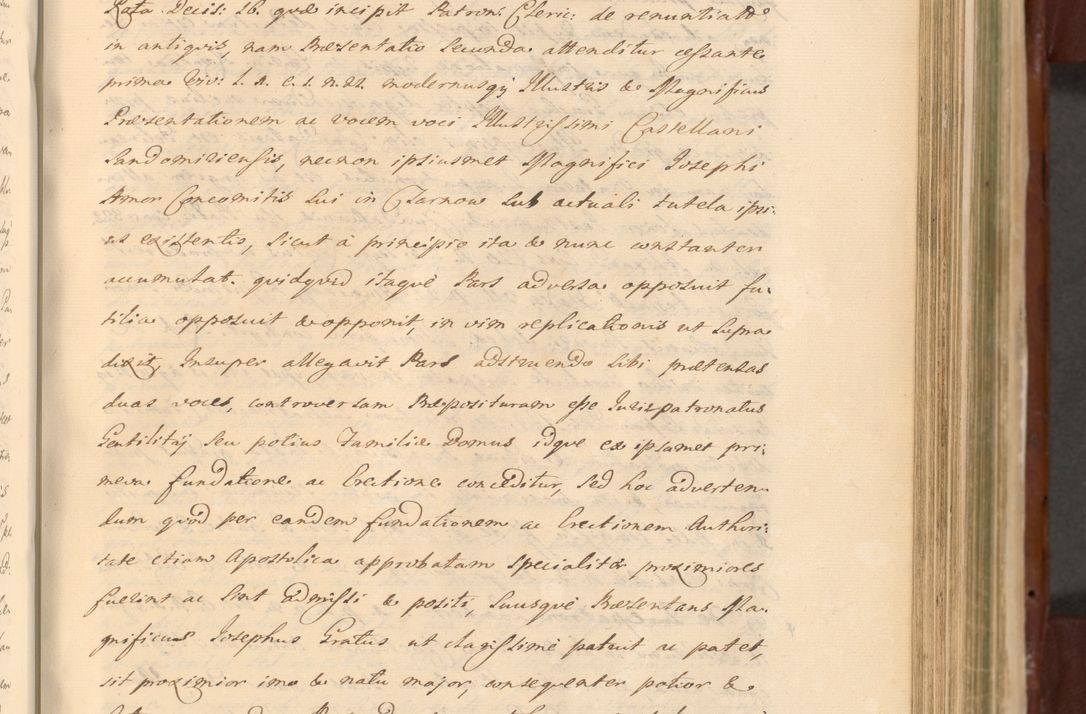 Rota Decis: 16. quæ incipit Patron: Cleric: de renuntiat:
in antiquis, nam Præsentatio Secunda attenditur cessante
prima Viv: L. 2. C. 1. n. 22. modernusq3 Illustris & Magnificus
Præsentationem ac vocem voci Illustrissimi Castellani
Sandomiriensis, necnon ipsiusmet Magnifici Josephi
Amor Concomitis sui in Czarnow sub actuali tutela ipsi:
us existentis, sicut à principio ita & nunc constanter
accumulat. quidquid itaque Pars adversa opposuit fu:
tilia opposuit & opponit, in vim replicationis ut supra
dixit, Insuper allegavit Pars adstruendo sibi prætensas
duas voces, controversam Præposituram esse Jurispatronatus
Gentilitij seu potius Familiæ Domus idque ex ipsamet pri:
meva fundatione ac Erectione conceditur, sed hoc adverten:
dum quòd per eandem fundationem ac Erectionem Authori:
tate etiam Apostolica approbatam specialitèr proximiores
fuerint ac sint admissi & positi, suusque Præsentans Ma:
gnificus Josephus Gratus ut clarissimè patuit ac patet,
sit proximior imo & natu major, consequenter potior &